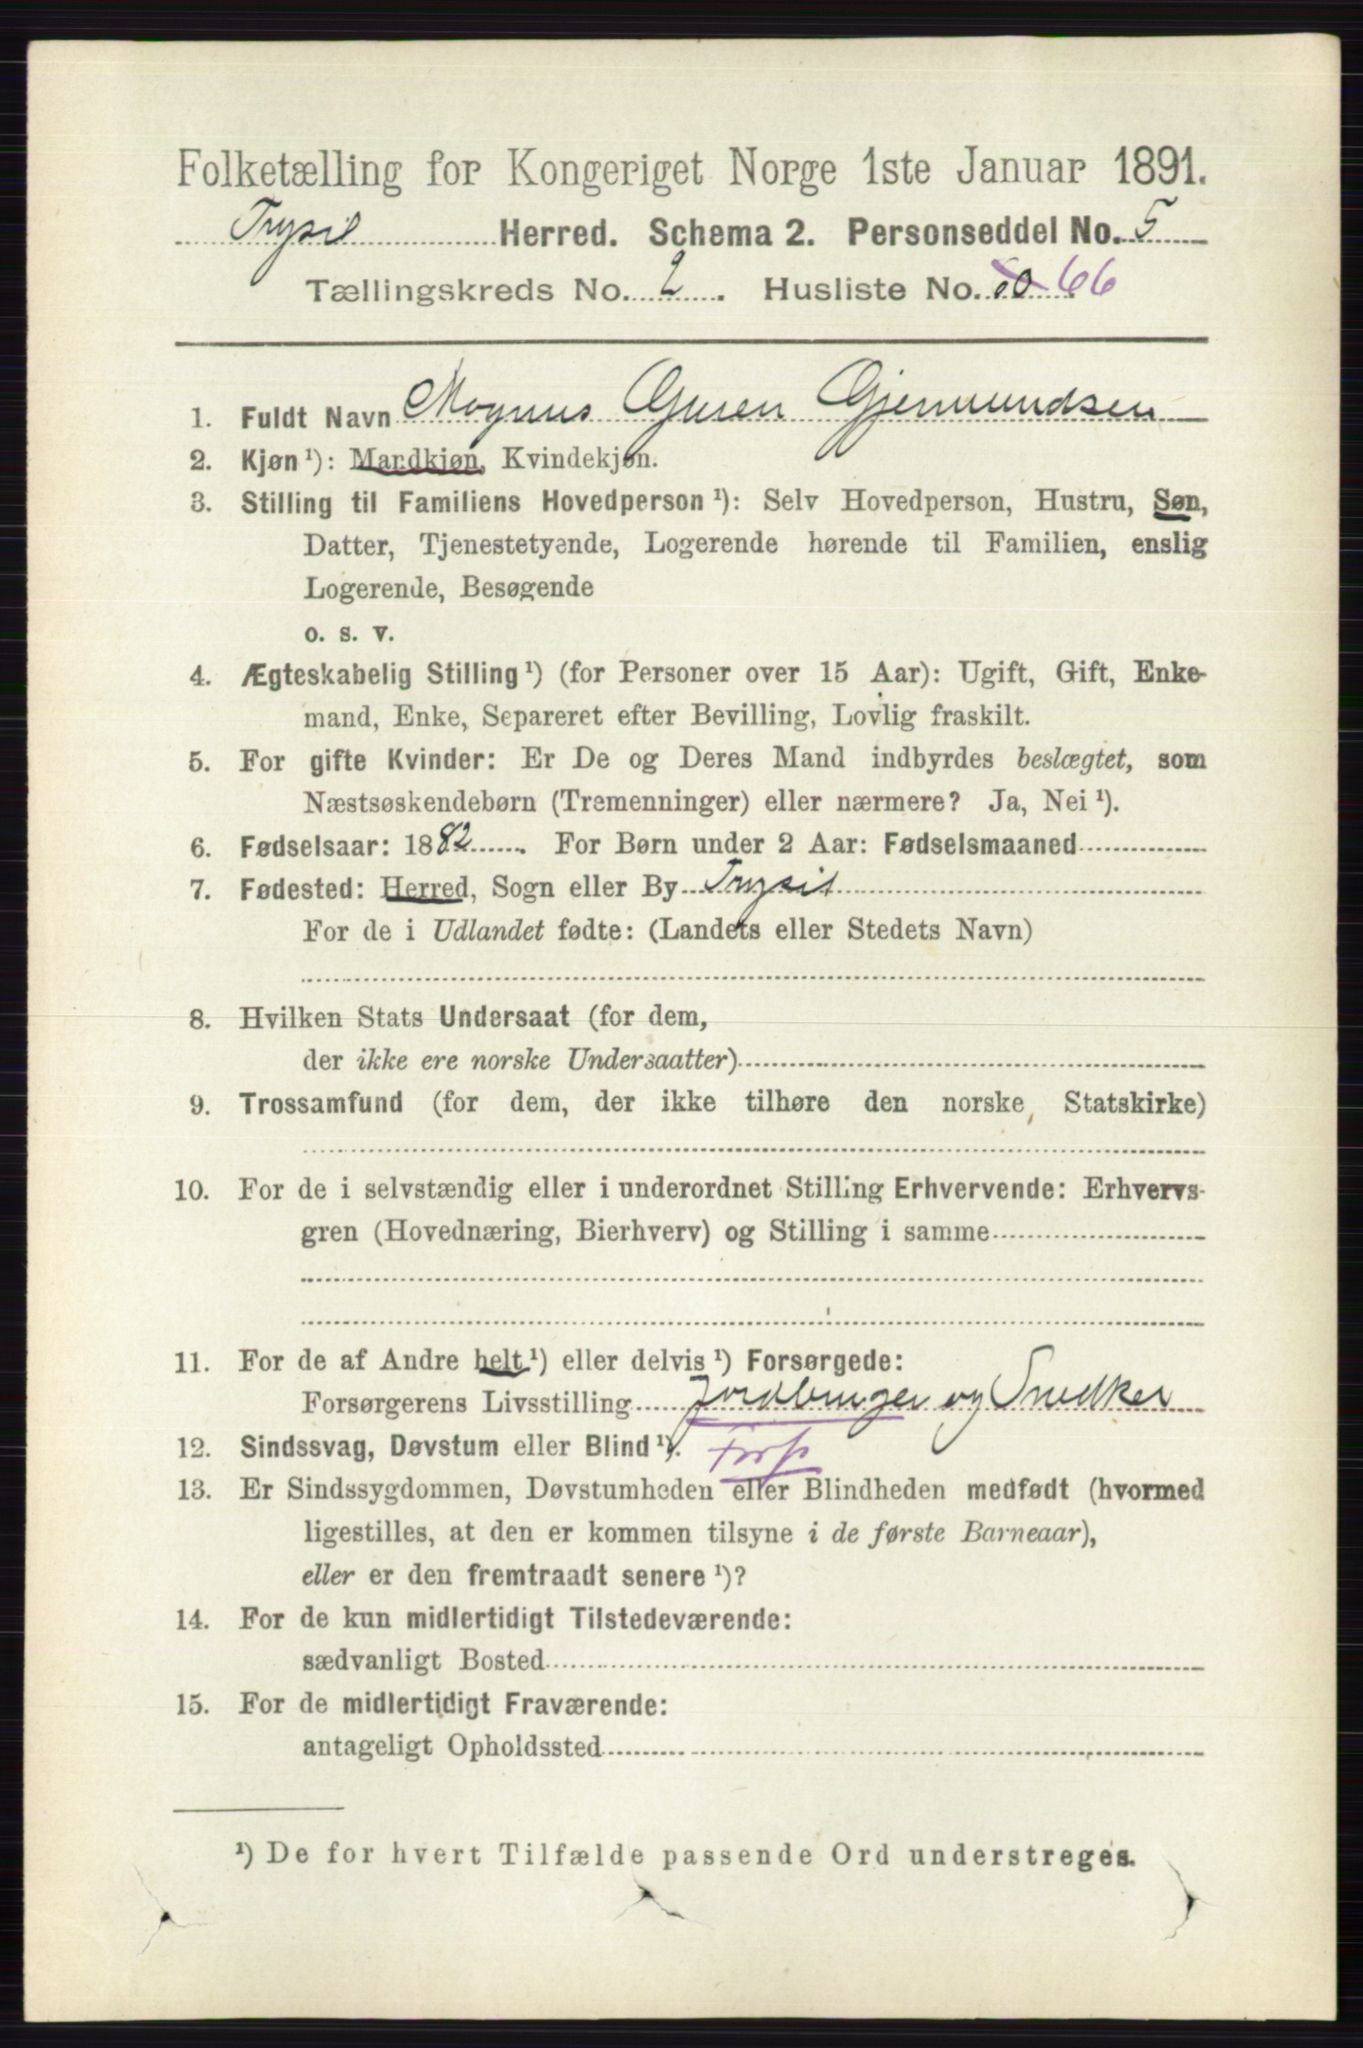 Folketælling for Kongeriget Norge 1ste Januar 1891.
Trysil Herred. Schema 2. Personseddel No. 5
Tællingskreds No. 2. Husliste No. 66
1. Fuldt Navn Magnus Guren Gjermundsen
2. Kjøn ¹): Mandkjøn, Kvindekjøn.
3. Stilling til Familiens Hovedperson ¹): Selv Hovedperson, Hustru, Søn,
Datter, Tjenestetyende, Logerende hørende til Familien, enslig
Logerende, Besøgende
o. s. v.
4. Ægteskabelig Stilling ¹) (for Personer over 15 Aar): Ugift, Gift, Enke-
mand, Enke, Separeret efter Bevilling, Lovlig fraskilt.
5. For gifte Kvinder: Er De og Deres Mand indbyrdes beslægtet, som
Næstsøskendebørn (Tremenninger) eller nærmere? Ja, Nei ¹).
6. Fødselsaar: 1882. For Børn under 2 Aar: Fødselsmaaned
7. Fødested: Herred, Sogn eller By Trysil
For de i Udlandet fødte: (Landets eller Stedets Navn)
8. Hvilken Stats Undersaat (for dem,
der ikke ere norske Undersaatter)
9. Trossamfund (for dem, der ikke tilhøre den norske Statskirke)
10. For de i selvstændig eller i underordnet Stilling Erhvervende: Erhvervs-
gren (Hovednæring, Bierhverv) og Stilling i samme
11. For de af Andre helt ¹) eller delvis ¹) Forsørgede:
Forsørgerens Livsstilling Jordbruger og Snedker
12. Sindssvag, Døvstum eller Blind ¹).
13. Er Sindssygdommen, Døvstumheden eller Blindheden medfødt (hvormed
ligestilles, at den er kommen tilsyne i de første Barneaar),
eller er den fremtraadt senere ¹)?
14. For de kun midlertidigt Tilstedeværende:
sædvanligt Bosted
15. For de midlertidigt Fraværende:
antageligt Opholdssted
¹) De for hvert Tilfælde passende Ord understreges.